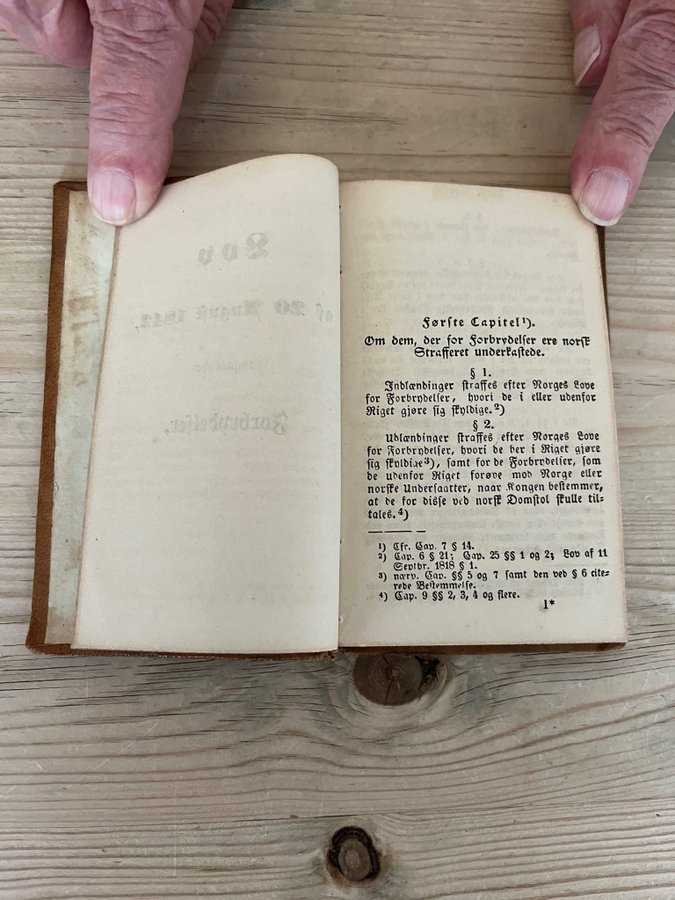 Lov
af 20 August 1842,
Forbrydelser.
Første Capitel¹).
Om dem, der for Forbrydelser ere norsk
Strafferet underkastede.
§ 1.
Indlændinger straffes efter Norges Love
for Forbrydelser, hvori de i eller udenfor
Riget gjøre sig skyldige.²)
§ 2.
Udlændinger straffes efter Norges Love
for Forbrydelser, hvori de her i Riget gjøre
sig skyldige³), samt for de Forbrydelser, som
de udenfor Riget forøve mod Norge eller
norske Undersaatter, naar Kongen bestemmer,
at de for disse ved norsk Domstol skulle til-
tales.⁴)
¹) Cfr. Cap. 7 § 14.
²) Cap. 6 § 21; Cap. 25 §§ 1 og 2; Lov af 11
Septbr. 1818 § 1.
³) nærv. Cap. §§ 5 og 7 samt den ved § 6 cite-
rede Bestemmelse.
⁴) Cap. 9 §§ 2, 3, 4 og flere.
1*